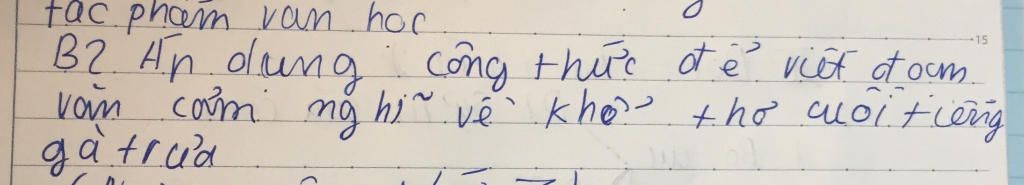 tác phẩm văn học
B2 Áp dụng công thức để viết đoạn
văn cảm nghĩ về khổ thơ cuối tiếng
gà trưa
15